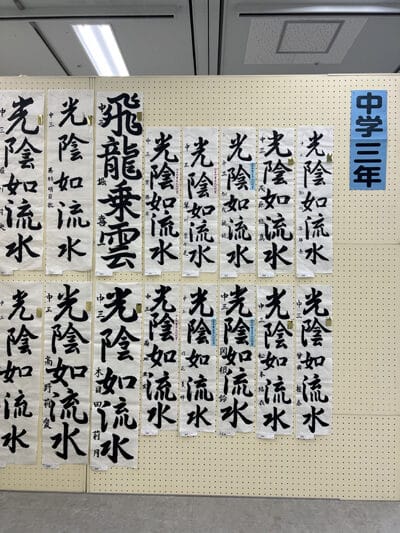 中学三年
光陰如流水
光陰如流水
光陰如流水
光陰如流水
光陰如流水
中三
飛龍乗雲
光陰如流水
中三
光陰如流水
中三
光陰如流水
中三
光陰如流水
中三
光陰如流水
中三
光陰如流水
光陰如流水
中三
光陰如流水
中三
光陰如流水
中三
光陰如流水
中三